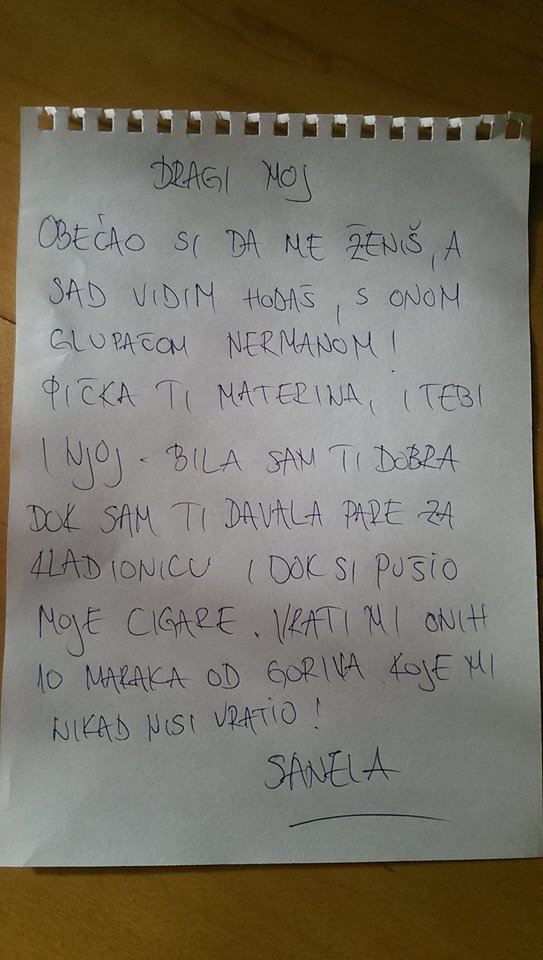 DRAGI MOJ
OBEĆAO SI DA ME ŽENIŠ, A
SAD VIDIM HODAŠ, S ONOM
GLUPAČOM NERMANOM!
PIČKA TI MATERINA, I TEBI
I NJOJ. BILA SAM TI DOBRA
DOK SAM TI DAVALA PARE ZA
KLADIONICU I DOK SI PUŠIO
MOJE CIGARE. VRATI MI ONIH
10 MARAKA OD GORIVA KOJE MI
NIKAD NISI VRATIO!
SANELA